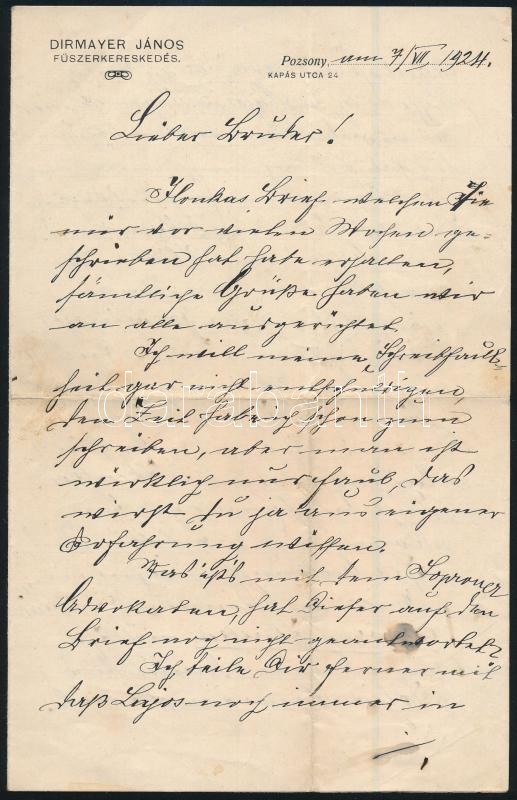 DIRMAYER JÁNOS
FÜSZERKERESKEDÉS.
Pozsony, am 7/VII 1924.
KAPÁS UTCA 24
Lieber Bruder!
Ilonkas Brief welchen Sie
mir vor vielen Wochen ge-
schrieben hat habe erhalten,
sämtliche Grüße haben wir
an alle ausgerichtet.
Ich will meine Schreibfaul-
heit gar nicht entschuldigen,
den Zeit hab ich schon zum
schreiben, aber man ist
wirklich nur faul, das
wirst du ja aus eigener
Erfahrung wissen.
Was ist's mit dem Soproner
Advokaten, hat dieser auf den
Brief noch nicht geantwortet?
Ich teile Dir ferner mit
daß Lajos noch immer in
darabanth